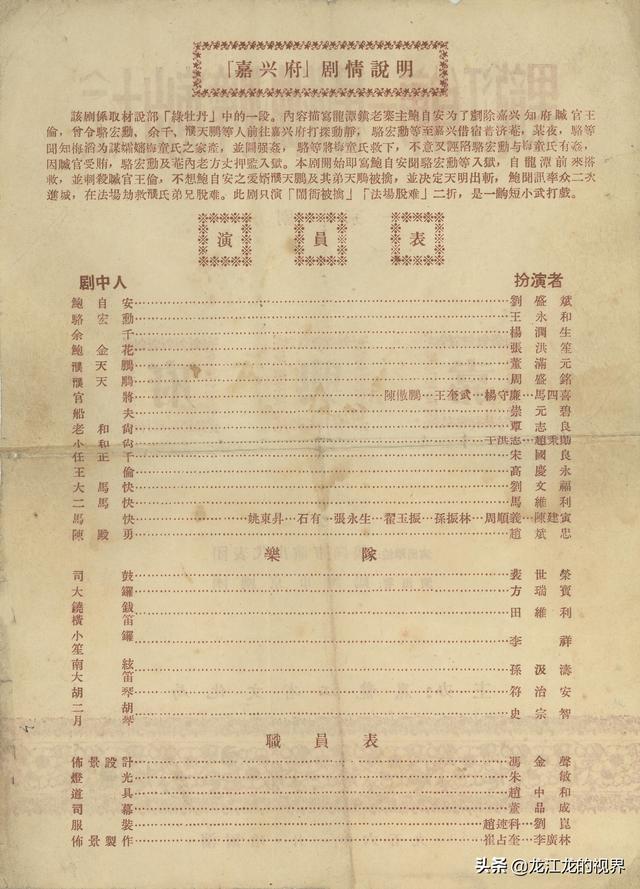 「嘉兴府」剧情説明
該剧係取材説部「綠牡丹」中的一段。內容描寫龍潭鎮老寨主鮑自安为了剷除嘉兴知府贓官王
倫，曾令駱宏勳、余千、濮天鵬等人前往嘉兴府打探動靜，駱宏勳等至嘉兴借宿普济菴，某夜，駱等
聞知梅滔为謀孀嬸梅童氏之家產，並圖强姦，駱等將梅童氏救下，不意又誣陷駱宏勳与梅童氏有姦，
因贓官受賄，駱宏勳及菴內老方丈押監入獄。本剧開始即寫鮑自安聞駱宏勳等入獄，自龍潭前來搭
救，並刺殺贓官王倫，不想鮑自安之爱婿濮天鵬及其弟天鵰被擒，並决定天明出斬，鮑聞訊率众二次
進城，在法場劫救濮氏弟兄脱难。此剧只演「鬧衙被擒」「法場脱难」二折，是一齣短小武打戲。
演 員 表
剧中人 扮演者
鮑自安 劉盛斌
駱宏勳 王永和
余千 楊潤生
鮑金花 張洪笙
濮天鵬 董滿元
濮天鵰 周盛銘
官將 陳傲鵬 王奎武 楊守廉 馬四喜
船夫 崇元碧
老和尚 覃志良
小和尚 于洪志 趙秉勛
任正千 宋國良
王倫 高慶永
大馬快 劉文福
二馬快 馬維利
馬快 姚東昇 石有 張永生 翟玉振 孫振林 周順義 陳建寅
陳殿勇 趙斌忠
樂隊
司鼓 裴世榮
大鑼 方瑞寶
鐃鈸
橫笛 田維利
小鑼
笙 李祥
南絃
大笛 孫汲濤
胡琴 符治安
二胡
月琴 史宗智
職員表
佈景設計 馮金聲
燈光 朱敏
道具 趙中和
司幕 董品成
服裝 趙連科 劉崑
佈景製作 崔占奎 李廣林
头条 @龙江龙的视界